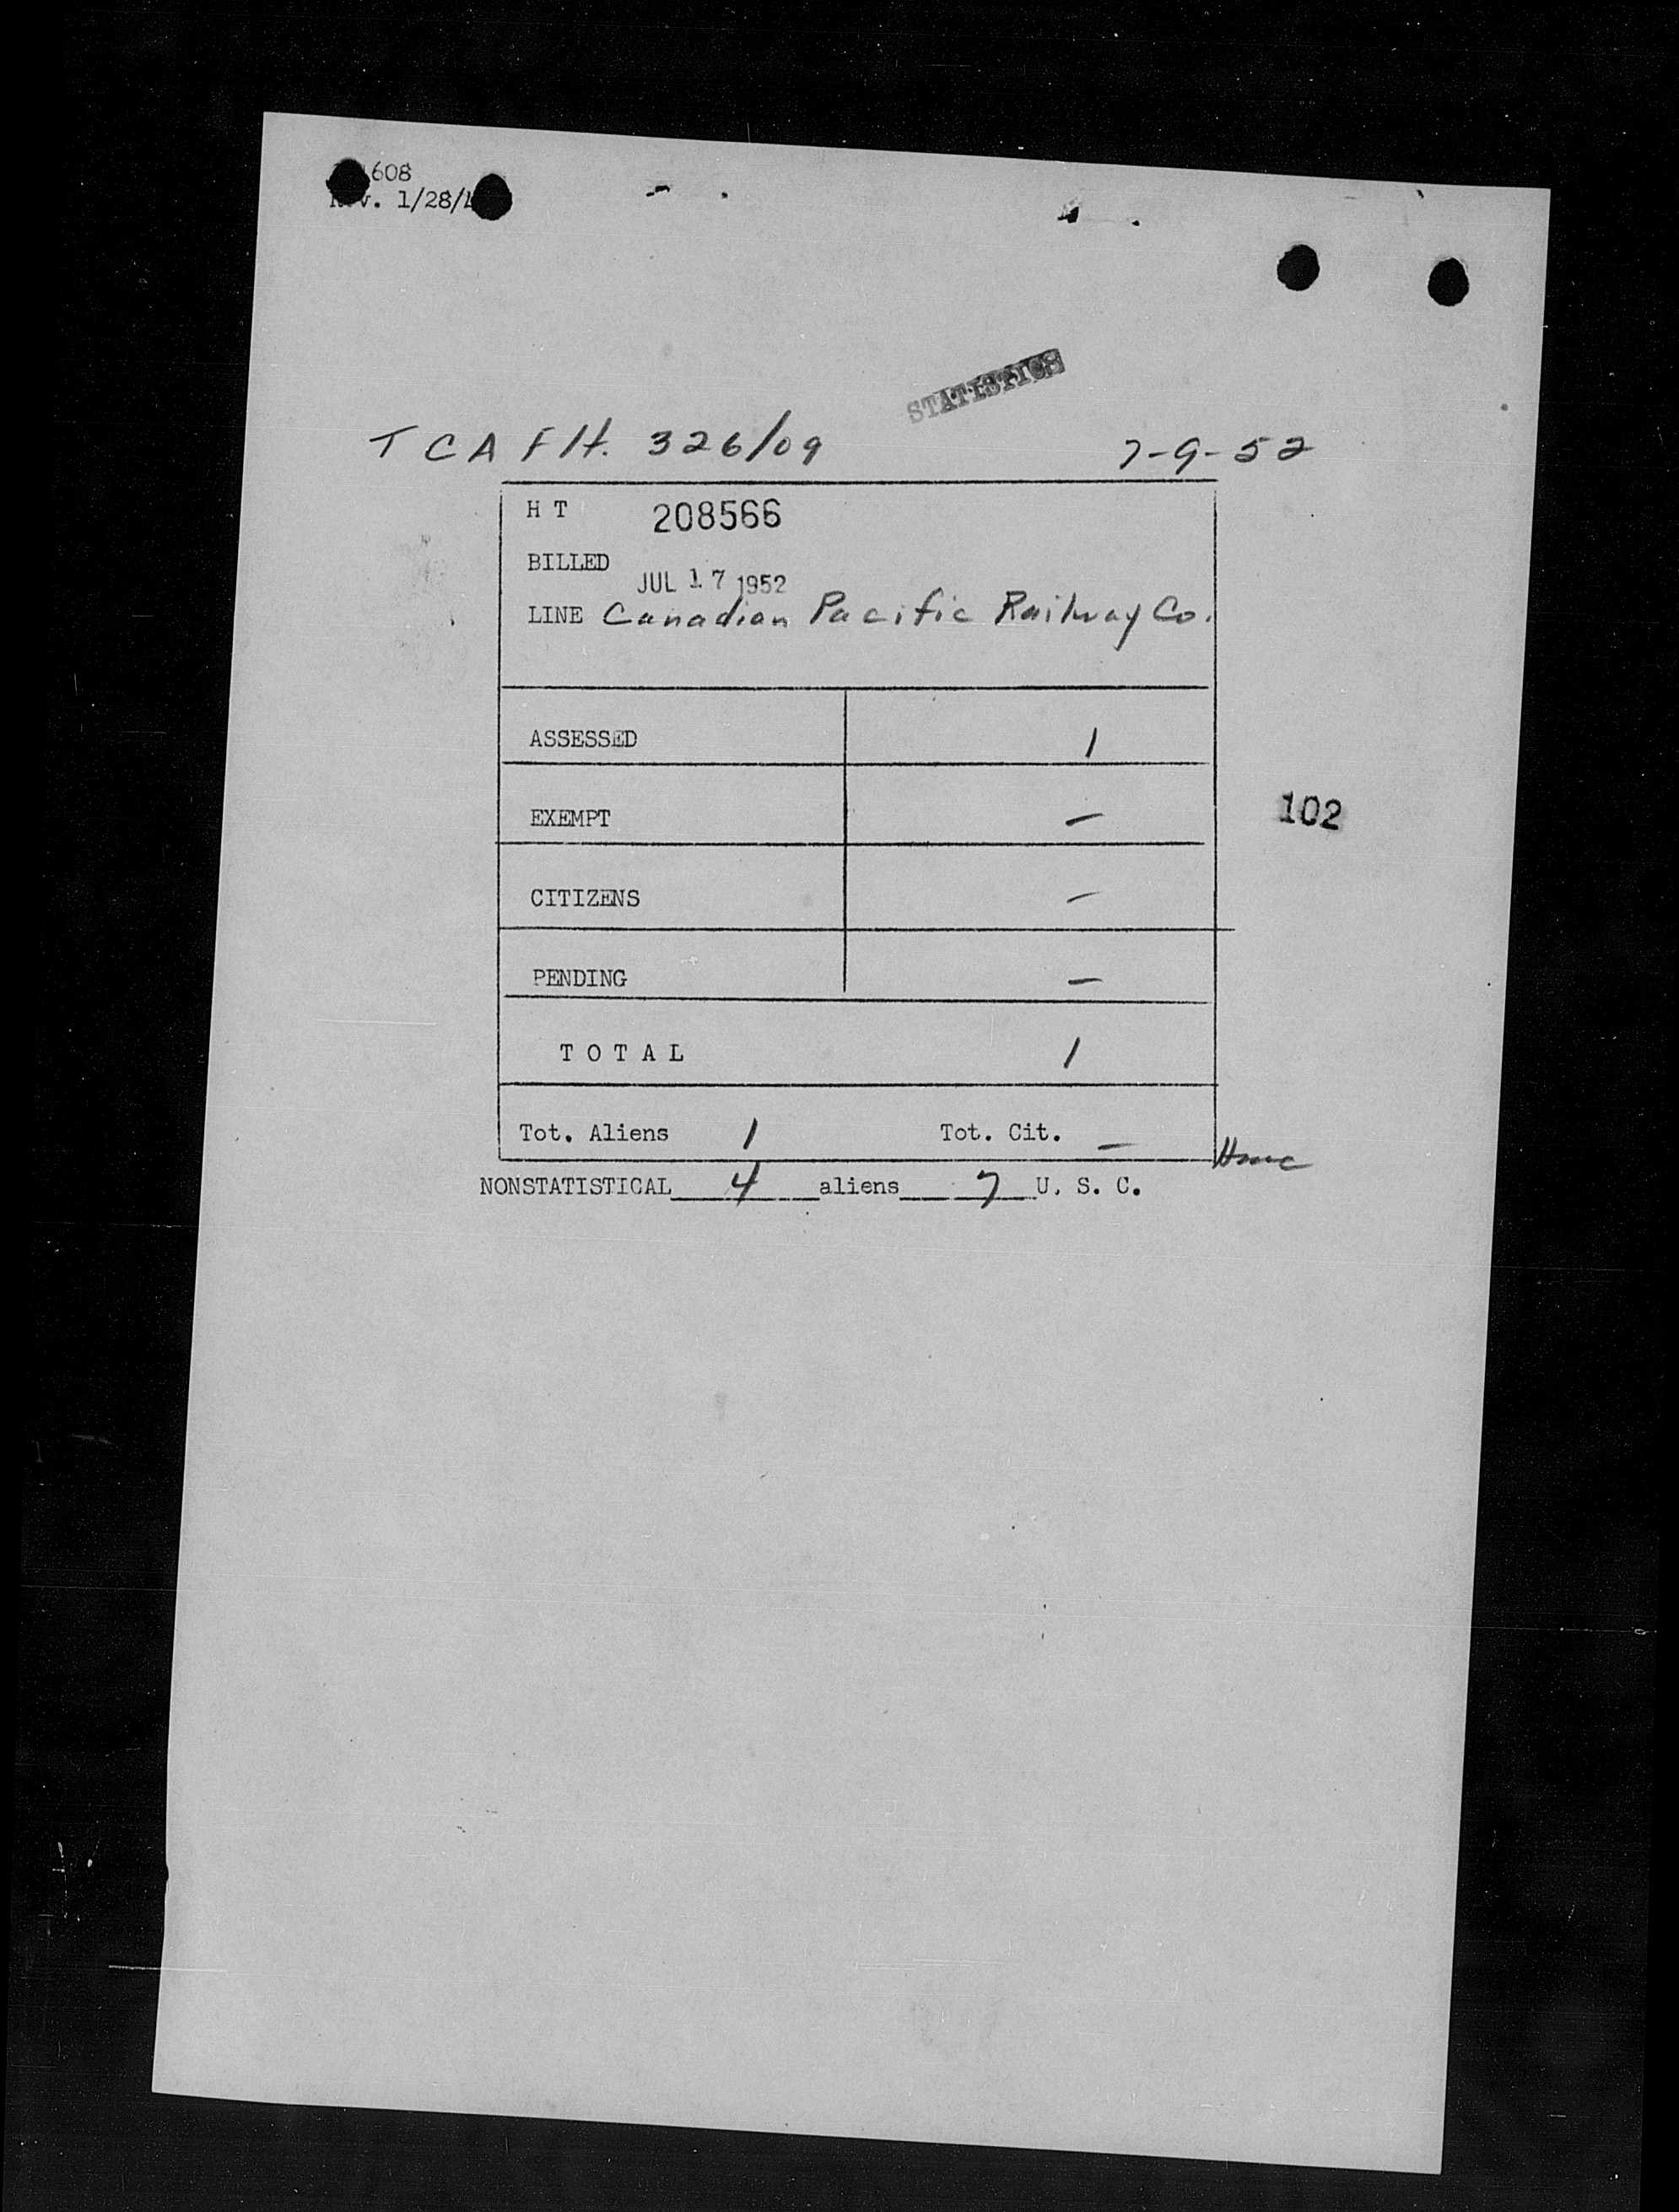 608
v. 1/28/4
STATISTICS
TCA Flt. 326/09 7-9-52
H T 208566
BILLED
JUL 17 1952
LINE Canadian Pacific Railway Co.
ASSESSED 1
EXEMPT —
102
CITIZENS —
PENDING —
T O T A L 1
Tot. Aliens 1 Tot. Cit. —
NONSTATISTICAL 4 aliens 7 U. S. C.